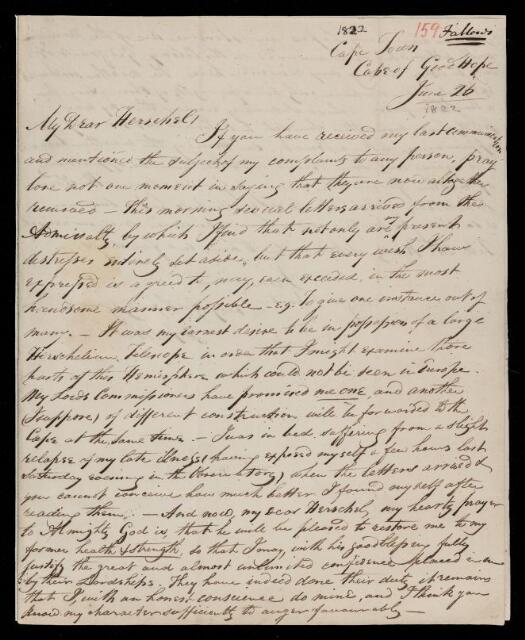 1822
159 Fallows
Cape Town
Cape of Good Hope
June 26
1822
My Dear Herschel
If you have received my last communication
and mentioned the subject of my complaints to any person, pray
lose not one moment in saying that they are now altogether
removed – This morning several letters arrived from the
Admiralty, by which I find that not only are my present
distresses entirely set aside, but that every wish I have
expressed is agreed to, nay, even exceeded, in the most
handsome manner possible – eg. to give one instance out of
many. – It was my earnest desire to be in possession of a large
Herschelian Telescope in order that I might examine those
parts of this Hemisphere which could not be seen in Europe.
My Lords Commissioners have promised me one, and another
(I suppose) of different construction will be forwarded to the
Cape at the same time. – I was in bed, suffering from a slight
relapse of my late illness (having exposed myself a few hours last
Saturday evening in the Observatory) when the letters arrived &
you cannot conceive how much better I found myself after
reading them. – And now, my dear Herschel, my hearty prayer
to Almighty God is, that he will be pleased to restore me to my
former health & strength, so that I may, with his good blessing fully
justify the great and almost unlimited confidence placed in me
by their Lordships. They have indeed done their duty, it remains
that I, with an honest conscience do mine, and I think you
know my character sufficiently to augur favourably –